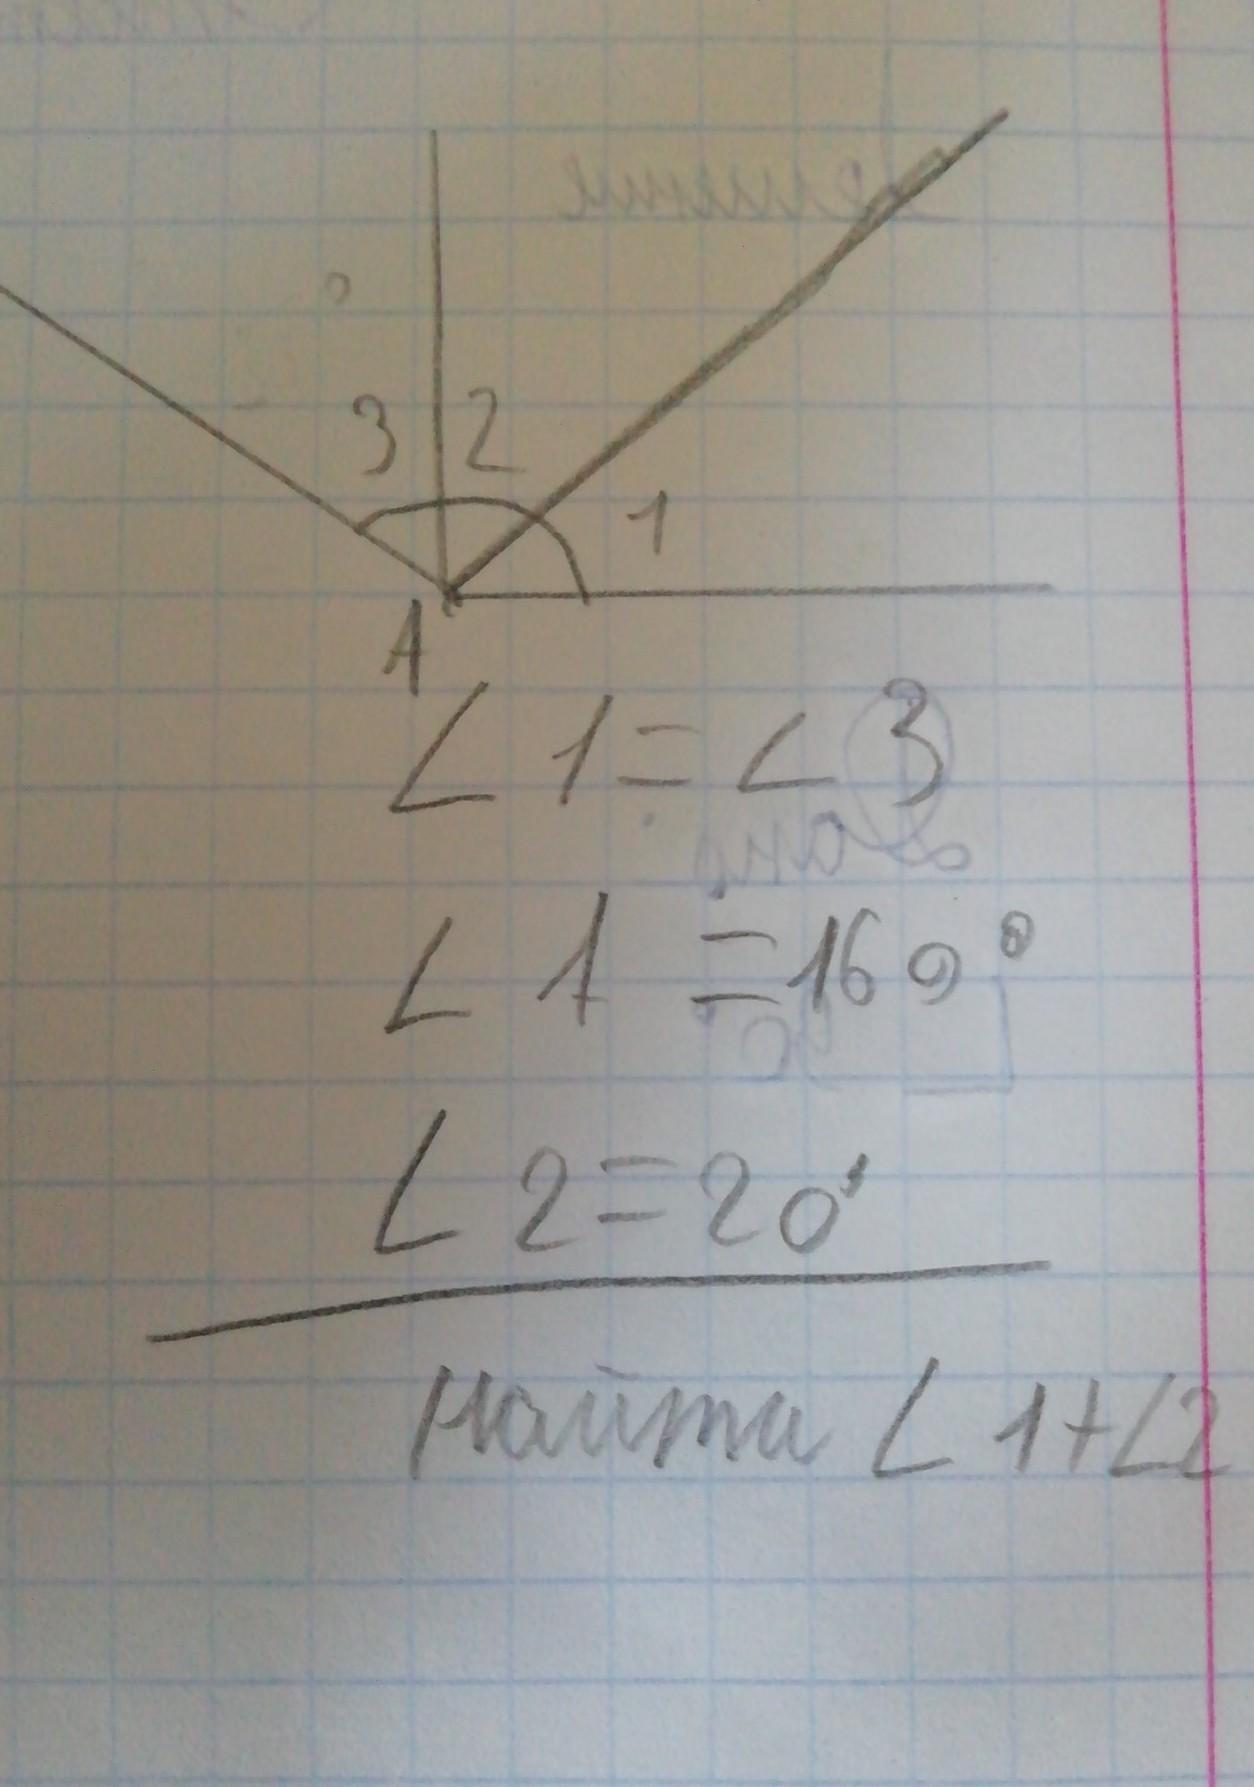 3 2
1
A
∠1=∠3
∠1=160°
∠2=20'
Найти ∠1+∠2